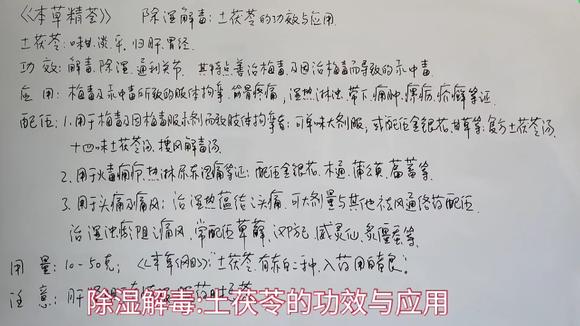 《本草精荟》 除湿解毒:土茯苓的功效与应用
土茯苓:味甘、淡、平,归肝、胃经.
功效:解毒,除湿,通利关节. 其特点善治梅毒及因治梅毒而导致的汞中毒
应用:梅毒及汞中毒所致的肢体拘挛,筋骨疼痛,湿热淋浊,带下,痈肿,瘰疬,疥癣等证.
配伍:1.用于梅毒及因梅毒服汞剂而致肢体拘挛者:可单味大剂服,或配伍金银花.甘草等:复方土茯苓汤,
十四味土茯苓汤,搜风解毒汤.
2.用火毒痈疖,热淋尿赤涩痛等证:配伍金银花、木通、蒲公英、萹蓄等.
3.用于头痛及痛风:治湿热蕴结之头痛,可大剂量与其他祛风通络药配伍.
治湿浊瘀阻之痛风,常配伍萆薢、威灵仙、炙僵蚕等.
用量:10-50克; 《本草纲目》:土茯苓,有赤白二种,入药用白者良.
注意:肝
除湿解毒:土茯苓的功效与应用